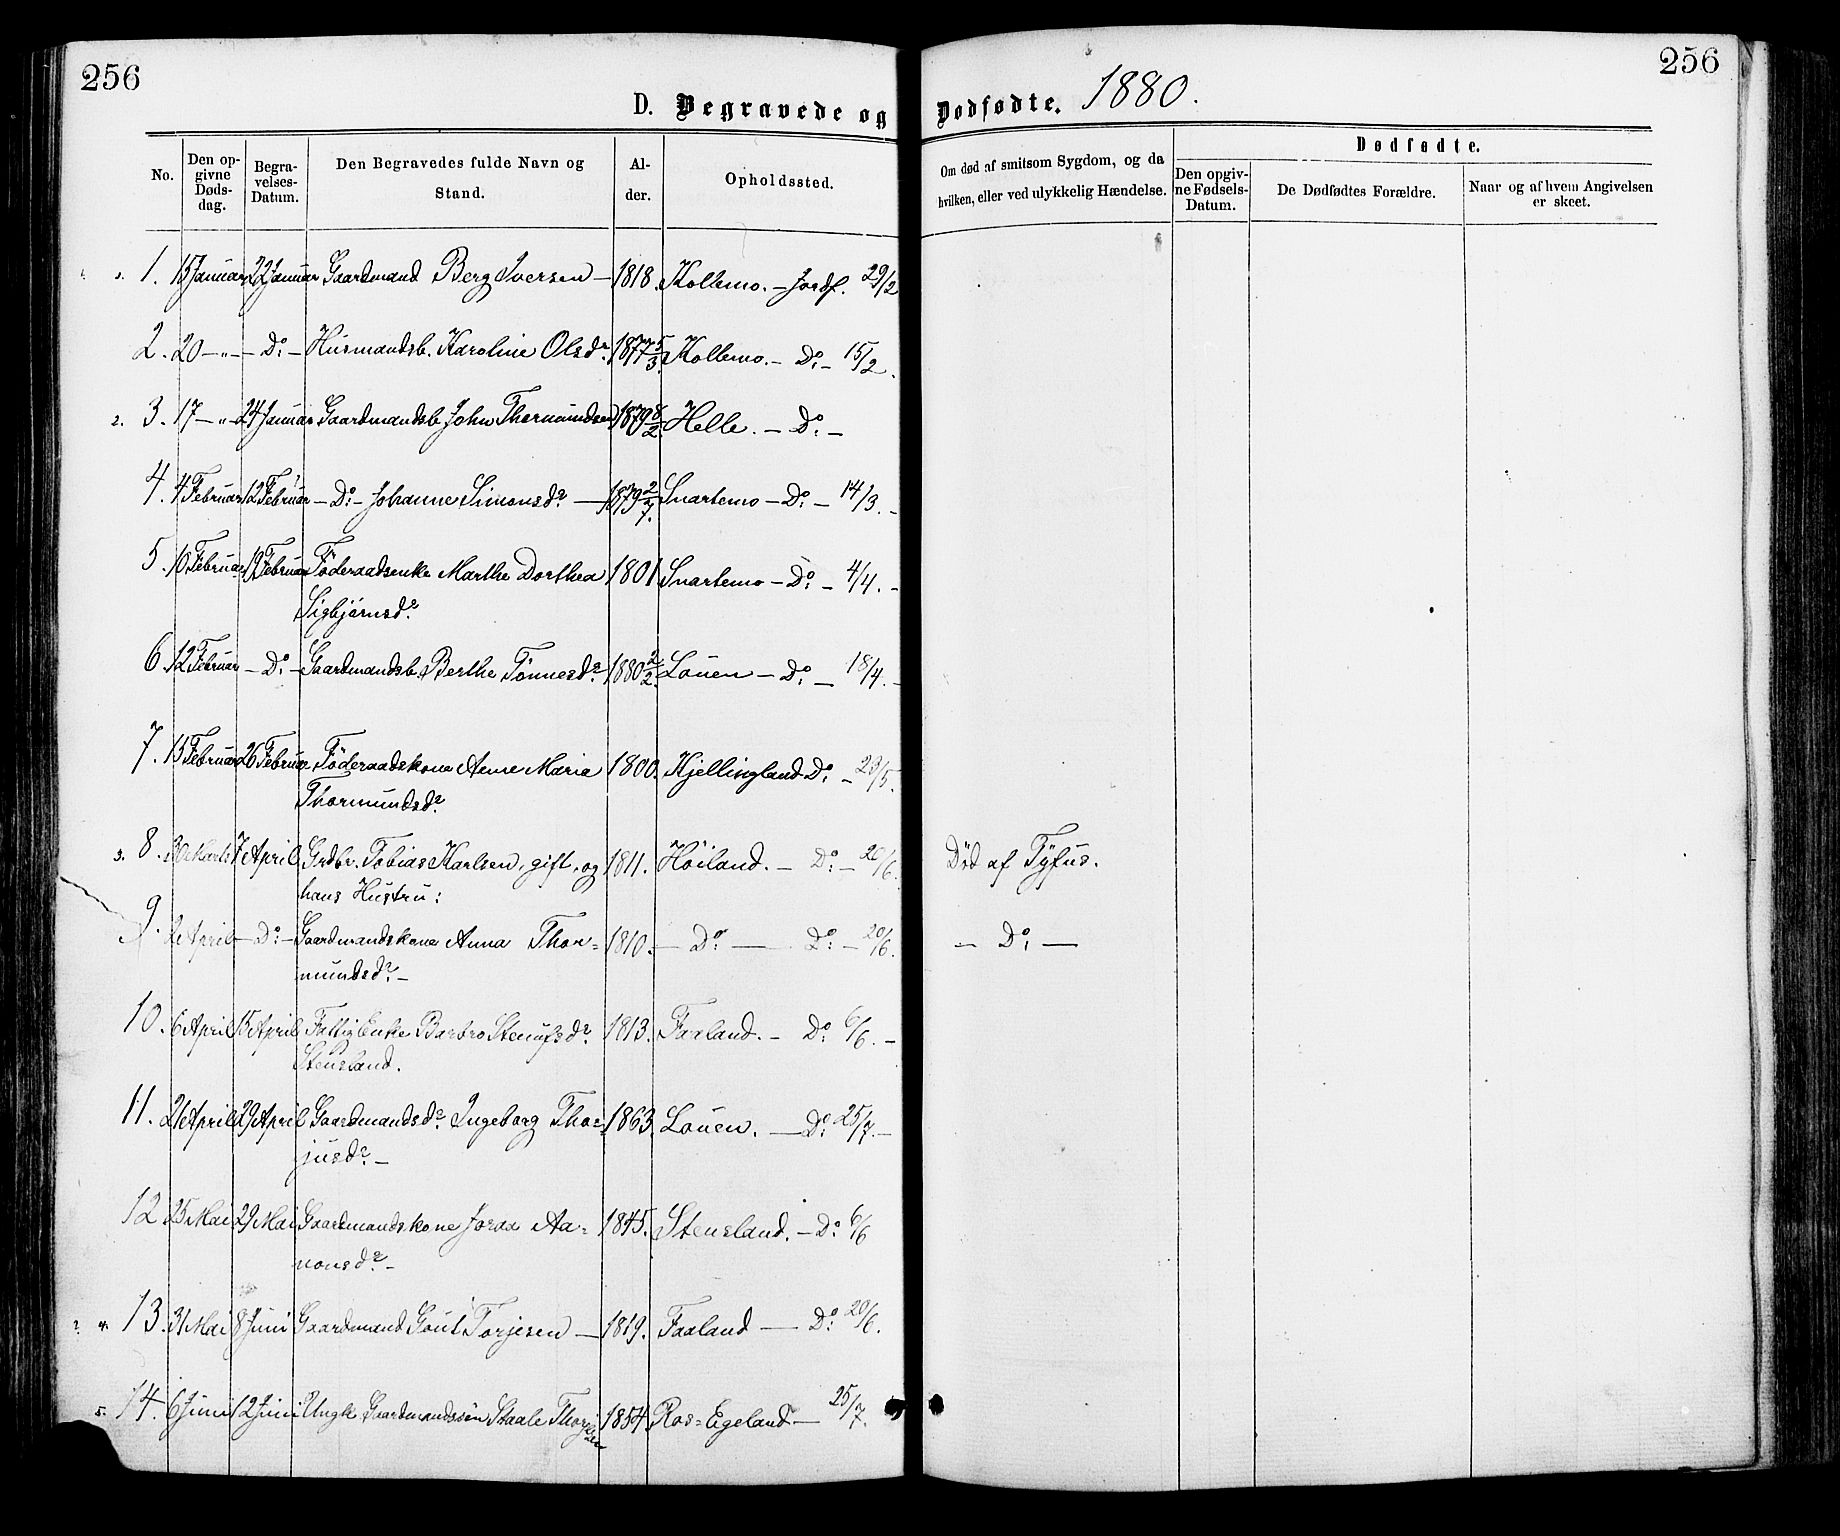 256
256
D. Begravede og Dødfødte. 1880.
No.
Den opgivne Dødsdag.
Begravelses-Datum.
Den Begravedes fulde Navn og Stand.
Alder.
Opholdssted.
Om død af smitsom Sygdom, og da hvilken, eller ved ulykkelig Hændelse.
Dødfødte.
Den opgivne Fødsels-Datum.
De Dødfødtes Forældre.
Naar og af hvem Angivelsen er skeet.
1. 15 Januar 22 Januar Gaardmand Berg Iversen — 1818. Kollemo. — Jordf. 29/2
2. 20 —„— — Do: — Husmandsb. Karoline Olsdr. 1877 5/3. Kollemo. — Do: — 15/2.
2. 3. 17 —„— 24 Januar Gaardmandsb. John Thormundsen 1879 8/2. Helle. — Do: —
4. 4 Februar 12 Februar — Do: — Johanne Simonsdr. — 1879 2/7. Snartemo — Do: — 14/3. —
5. 10 Februar 19 Februar Föderaadsenke Marthe Dorthea 1801 Snartemo — Do: — 4/4. —
Sigbjörnsdr.
6. 12 Februar — Do: — Gaardmandsb. Berthe Tönnesdr. 1880 2/2. Louen — Do: — 18/4. —
7. 15 Februar 26 Februar Föderaadskone Anne Maria 1800. Kjellingland Do: — 23/5.
Thormundsdr.
3. 8. 30 Marts 7 April Grdbr. Tobias Karlsen, gift, og 1811. Höiland. — Do: — 20/6. Död af Tyfus.
hans Hustru:
9. 2 April — Do: — Gaardmandskone Anna Thor= 1810. — Do: — Do: — 20/6. — Do: —
mundsdr. —
10. 6 April 15 April Fattig Enke Barbro Stenufsdr. 1813. Faaland. — Do: 6/6. —
Stensland.
11. 21 April 29 April Gaardmandsdr. Ingeborg Thor= 1863. Louen. — Do: 25/7. —
jusdr. —
12 25 Mai 29 Mai Gaardmandskone Joraa Aa= 1845. Stensland. — Do: 6/6
nonsdr. —
4. 13. 31 Mai 8 Juni Gaardmand Gout Torjesen — 1819. Faaland — Do: 20/6.
5. 14. 6 Juni 12 Juni Ungk. Gaardmandssön Staale Thorjussen 1854. Ros=Egeland — 25/7.